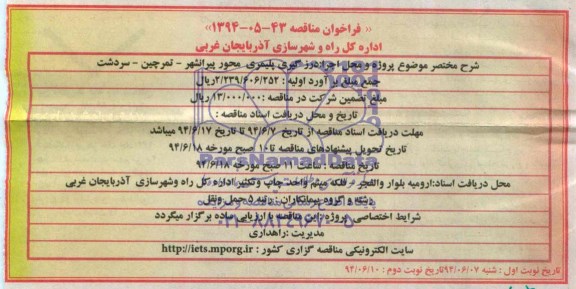 « فراخوان مناقصه ۴۳-۰۵-۱۳۹۴»
اداره کل راه و شهرسازی آذربایجان غربی
شرح مختصر موضوع پروژه و محل اجرا: درز گیری پلیمری محور پیرانشهر - تمرچین - سردشت
جمع مبلغ برآورد اولیه : ۲/۲۳۹/۶۰۶/۲۵۲ریال
مبلغ تضمین شرکت در مناقصه: ۱۳/۰۰۰/۰۰۰ ریال
تاریخ و محل دریافت اسناد مناقصه :
مهلت دریافت اسناد مناقصه از تاریخ ۹۴/۶/۷ تا تاریخ ۹۴/۶/۱۷ میباشد
تاریخ تحویل پیشنهادهای مناقصه تا۱۰ صبح مورخه ۹۴/۶/۱۸
تاریخ مناقصه : ساعت ۱۱ صبح مورخه ۹۴/۶/۱۸
ParsNamadData
محل دریافت اسناد:ارومیه بلوار والفجر - فلکه میثم واحد چاپ وتکثیر اداره کل راه وشهرسازی آذربایجان غربی
رشته و گروه پیمانکاران : رتبه ۵ حمل ونقل
شرایط اختصاصی پروژه :این مناقصه با ارزیابی ساده برگزار میگردد
۰۲۱-۸۸۳۴۹۶۷۰-۵
مدیریت :راهداری
سایت الکترونیکی مناقصه گزاری کشور : http://iets.mporg.ir
تاریخ نوبت اول : شنبه ۹۴/۰۶/۰۷تاریخ نوبت دوم : ۹۴/۰۶/۱۰